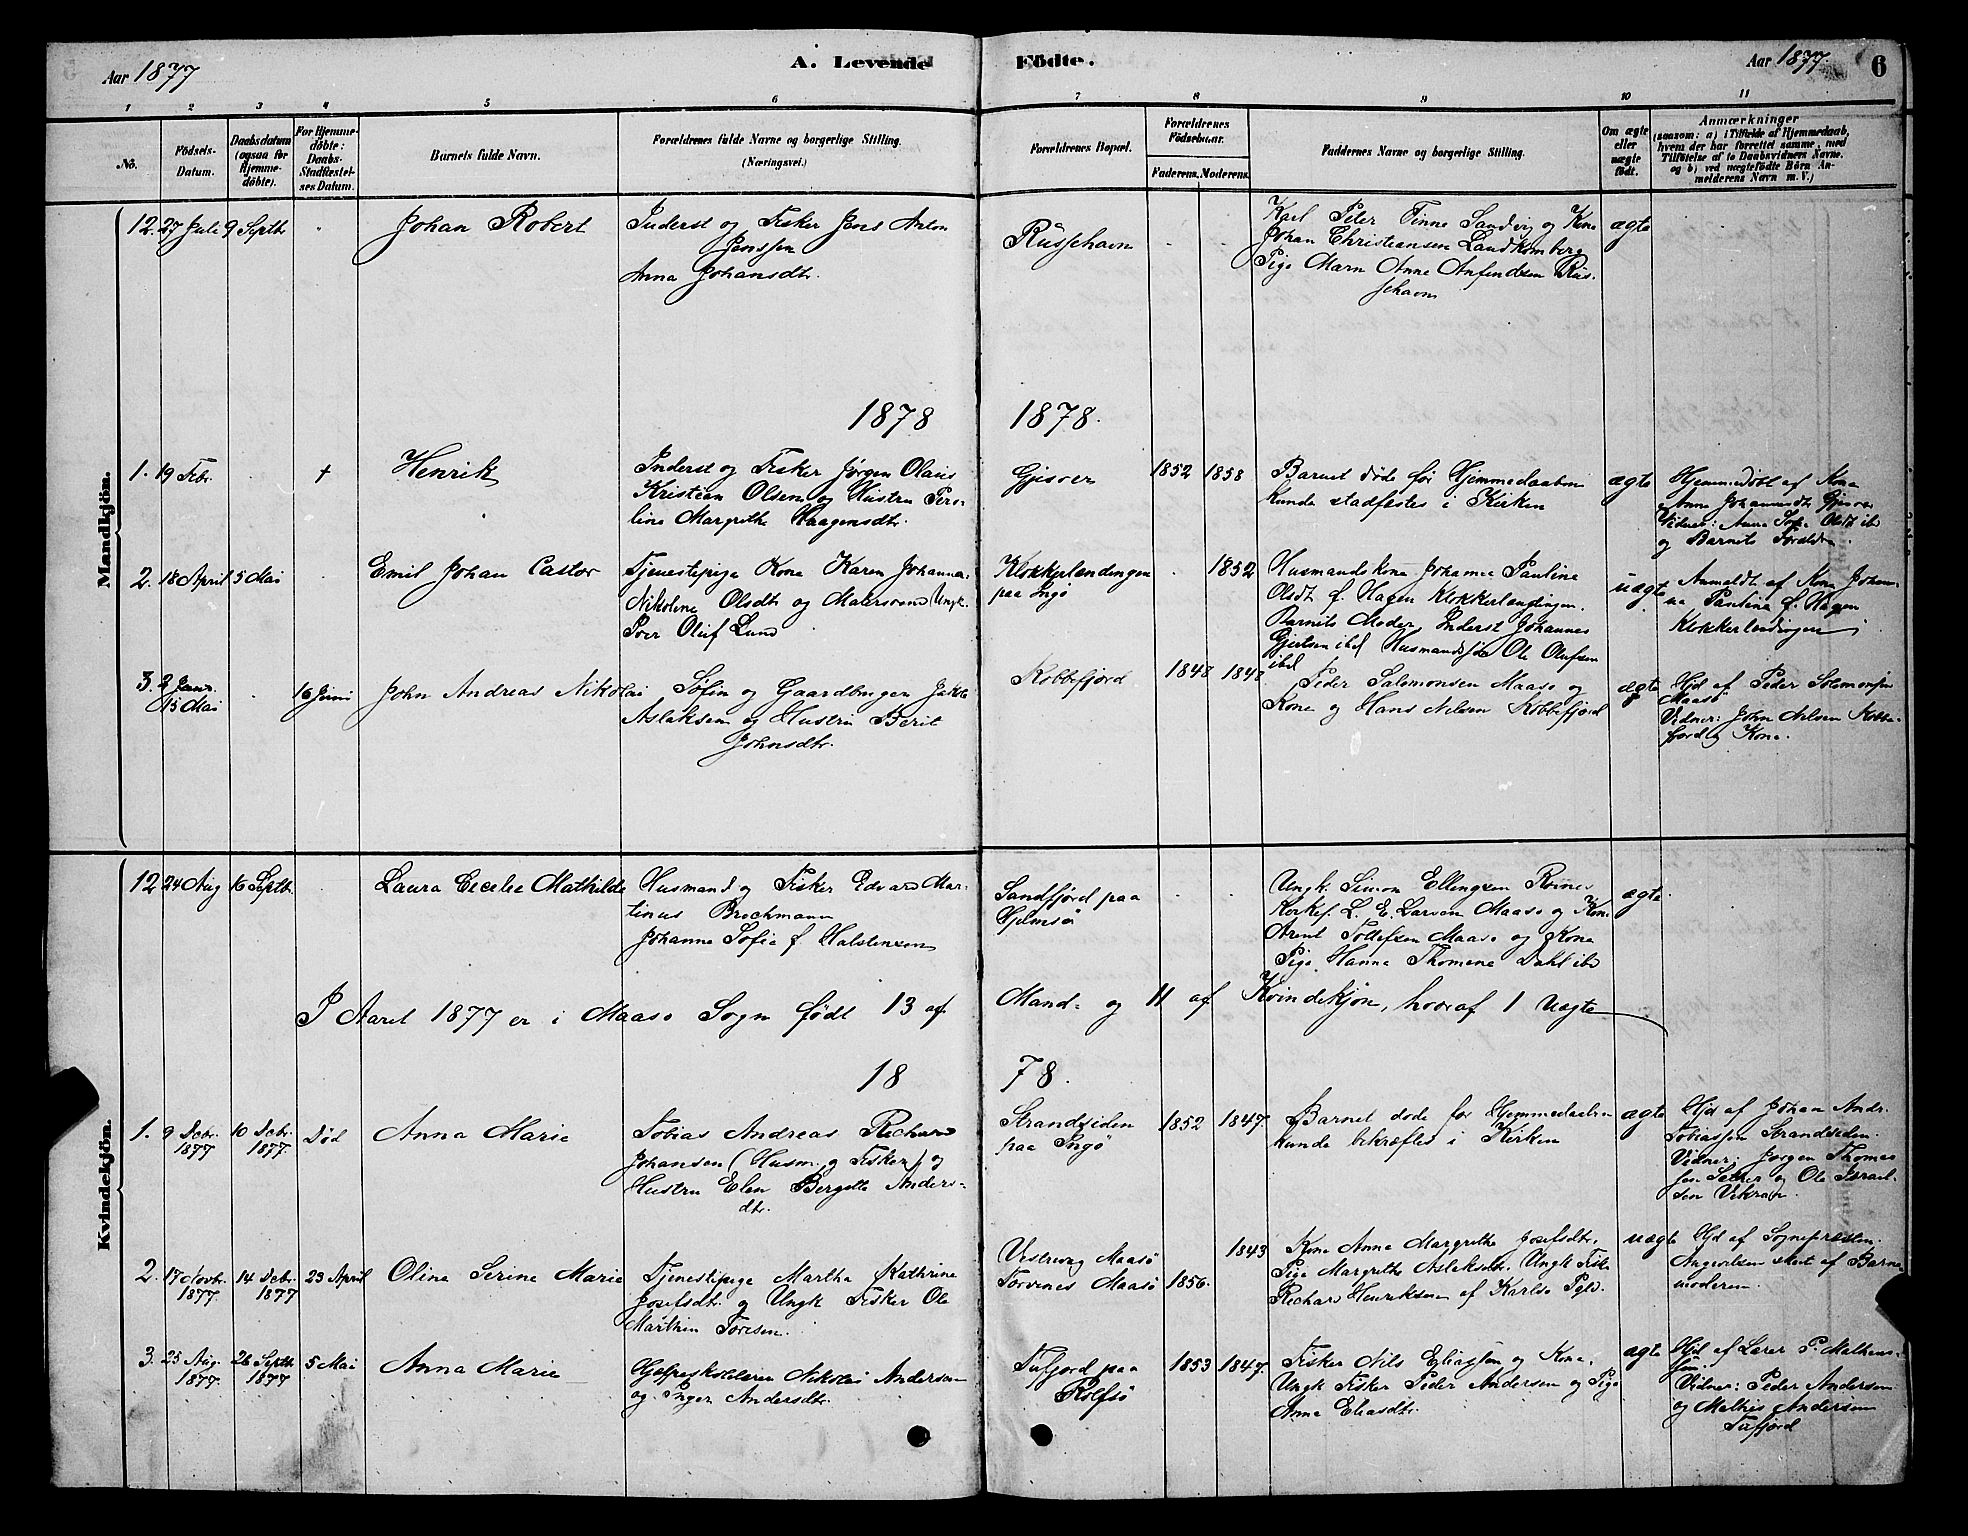 Aar 1877
A. Levende
Födte.
Aar 1877.
6
1 2 3 4 5 6 7 8 9 10 11
No.
Födsels-
Datum.
Daabsdatum
(ogsaa for
Hjemme-
döbte).
For Hjemme-
döbte:
Daabs-
Stadfæstel-
ses Datum.
Barnets fulde Navn.
Forældrenes fulde Navne og borgerlige Stilling.
(Næringsvei.)
Forældrenes Bopæl.
Forældrenes
Födselsaar.
Faderens. Moderens.
Faddernes Navne og borgerlige Stilling.
Om ægte
eller
uægte
födt.
Anmærkninger
(saasom: a) i Tilfælde af Hjemmedaab,
hvem der har forrettet samme, med
Tilföielse af to Daabsvidners Navne.
og b) ved uægtefödte Börn An-
melderens Navn m. V.)
Mandkjön.
12. 27 Juli 9 Septb.
Johan Robert
Inderst og Fisker Jens Anton
Jenssen
Anna Johansdtr.
Russehavn
Karl Peter Finne Sandvig og Kone
Johan Christiansen
Pige Maren Anne Anfindsen Rus-
sehavn
ægte
1878
1878.
1. 19 Febr. +
Henrik
Inderst og Fisker Jørgen Olaus
Kristian Olsen og Hustru Pero-
line Margrethe Haagensdtr.
Gjesver
1852 1858
Barnet døde før Hjemmedaaben
kunde stadfæstes i Kirken
ægte
Hjemmedøbt af Kone
Anne Johannesdtr Gjesver
Vidner: Anne Sofie Olsdtr ibd
og Barnets Forældre.
2. 18 April 5 Mai
Emil Johan Castor
Tjenestepige Kone Karen Johanna
Nikoline Olsdtr og Malersvend Ungk.
Peer Oluf Lund
Klokkerlændingen
paa Ingø
1852
Husmandskone Johanna Paulina
Olsdt f. Hagen Klokkerlændingen.
Barnets Moder, Inderst Johannes
Gjertsen ibd Husmandss Ole Olufsen
ibd
uægte
Anmeldt af Kone Johan-
na Paulina f. Hagen
Klokkerlendingen
3. 2 Janr.
15 Mai
16 Juni
John Andreas Nikolai
Søfin og Gaardbruger Jakob
Aslaksen og Hustru Berit
Johnsdtr.
Kobbefjord
1848 1848
Peder Salomonsen Maasø og
Kone og Hans Nilsen Kobbefjord
ægte
Hjd af Peder Salomonsen
Maasø
Vidner: John Nilsen Kobbe-
fjord og Kone.
Kvindekjön.
12 24 Aug 16 Septbr.
Laura Cecelie Mathilde
Husmand og Fisker Edvard Mar-
tinus Brochmann
Johanna Sofie f. Halstensen
Sandfjord paa
Hjelmsø
Ungk. Simon Ellingsen
L. E. Larsen Maasø og Kone
Arent Tollefsen Maasø og Kone
Pige Hanna Thomene Dahl ibd
ægte
I Aaret 1877 er i Maasø Sogn født 13 af
Mand- og 11 af Kvindekjøn, hvoraf 1 Uægte
18
78.
1. 9 Debr.
1877
10 Debr.
1877.
Død
Anna Marie
Tobias Andreas Richard
Johansen (Husm. og Fisker) og
Hustru Elen Bergette Anders-
dtr.
Strandsiden
paa Ingø
1852 1847.
Barnet døde før Hjemmedaaben
kunde bekræftes i Kirken
ægte
Hjd af Johan Andr.
Tobiassen Strandsiden.
Vidner: Jørgen Thomas-
sen og Ole Israel-
sen
2. 17 Novbr.
1877.
14 Debr.
1877
23 April
Olina Serine Marie
Tjenestepige Martha Kathrine
Josefsdtr. og Ungk Fisker Ole
Marthin Toresen.
Vestrevag Maasø
Torvenes Maasø
1856. 1843
Kone Anna Margrethe Josefsdtr.
Pige Margrethe Aslaksdtr. Ungk Fisker
Richard Henriksen af Karlsø Pgld.
uægte
Hjd af Sognepræsten.
Angivelsen skeet af Barne-
moderen
3. 25 Aug.
1877.
26 Septbr
1877
5 Mai
Anna Marie
Hjelpeskolelærer Nikolai Andersen
og Inger Andersdtr.
Tufjord paa
Rolfsø
1853 1847.
Fisker Nils Eliassen og Kone,
Ungk Fisker Peder Andersen og Pige
Anna Eliasdtr.
ægte
Hjd af Lærer P. Mathis-
sen.
Vidner: Peder Andersen
og Mathis Andersen
Tufjord